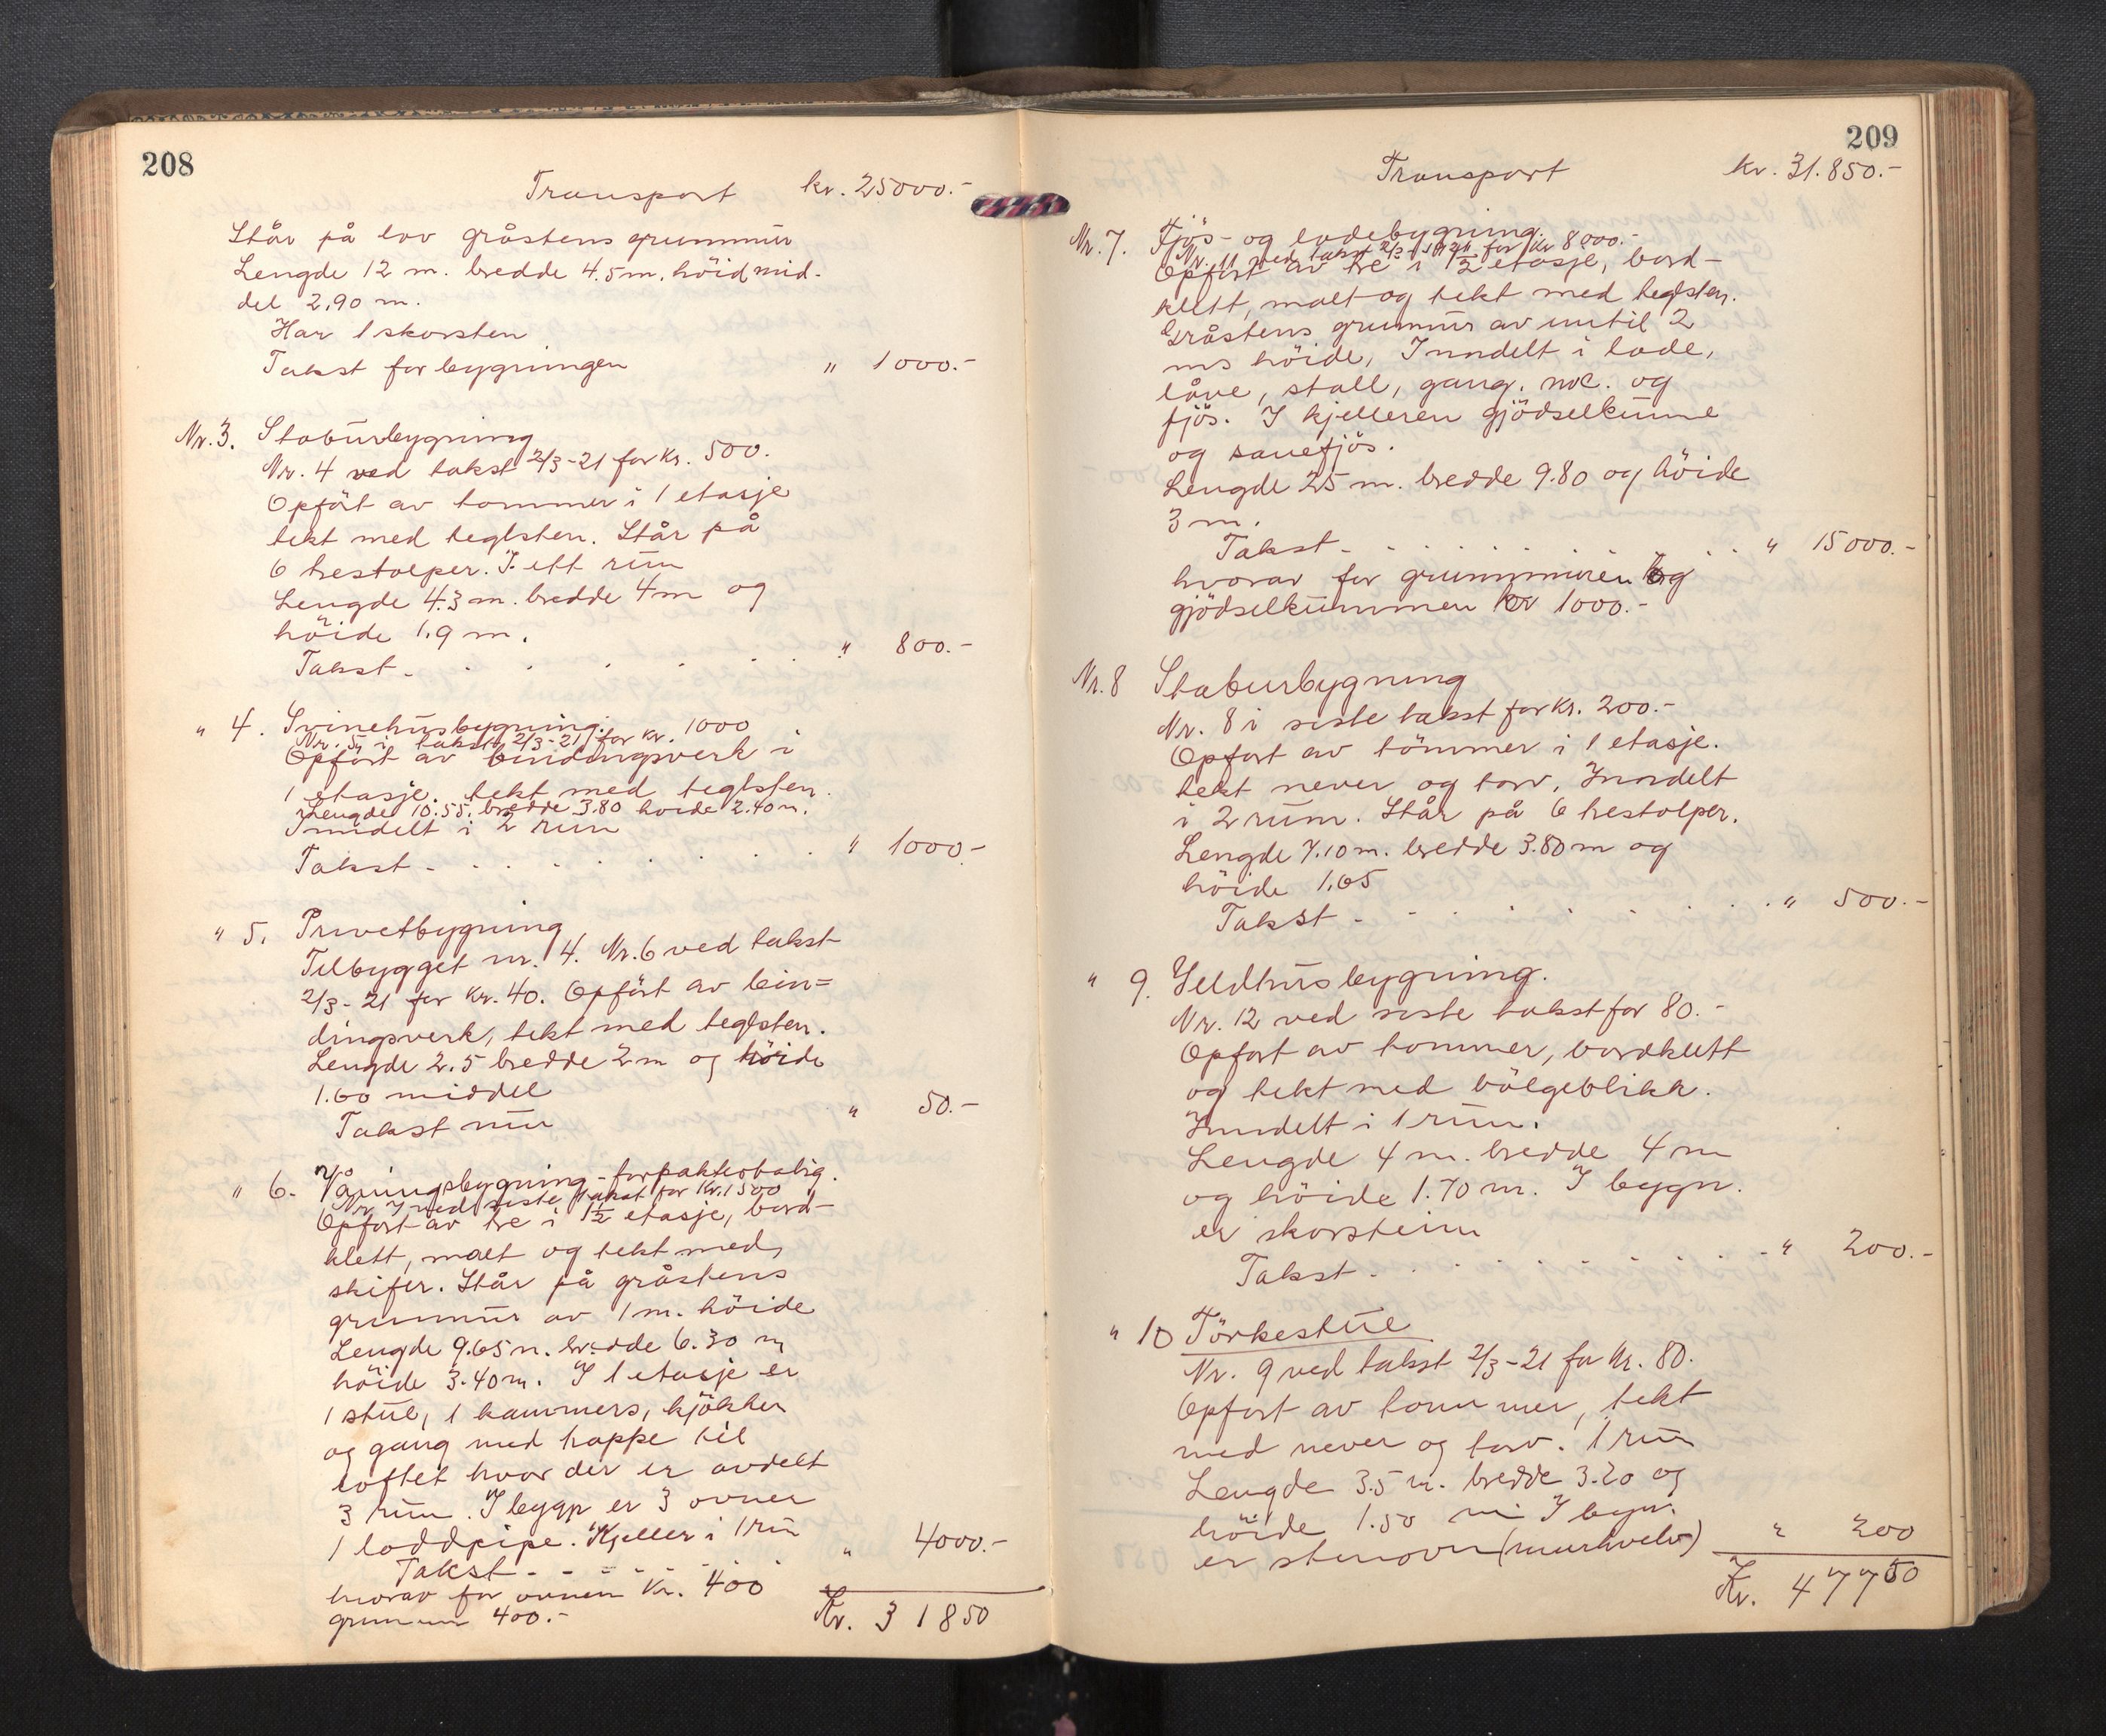 208
Transport kr. 25000.-
Står på lav gråstens grunnmur
Lengde 12 m. bredde 4.5 m. höid mid-
del 2,90 m.
Har 1 skorsten
Takst for bygningen " 1000.-
Nr. 3. Stabursbygning
Nr. 4 ved takst 2/3-21 for kr. 500.
Opfört av tömmer i 1 etasje
tekt med teglsten. Står på
6 trestolper. I ett rum
Lengde 4.3 m. bredde 4 m og
höide 1.9 m.
Takst - . . . . . . " 800.-
" 4. Svinehusbygning.
Nr. 5 i takst 2/3-21 for kr. 1000
Opfört av bindingsverk i
1 etasje. tekt med teglsten.
Lengde 10.55. bredde 3.80 höide 2.40 m.
Inndelt i 2 rum
Takst - . . . . . . . " 1000.-
" 5. Privetbygning
Tilbygget nr. 4. Nr. 6 ved takst
2/3-21 for kr. 40. Opfört av bin=
dingsverk, tekt med teglsten.
Lengde 2.5 bredde 2 m og höide
1.60 middel
Takst nu " 50.-
" 6. Våningsbygning - forpakterbolig.
Nr 7 ved siste takst for kr. 1500
Opfört av tre i 1½ etasje, bord-
klett, malt og tekt med
skifer. Står på gråstens
grunnmur av 1 m. höide
Lengde 9.65 m. bredde 6.30 m
höide 3.40 m. I 1 etasje er
1 stue, 1 kammers, kjökken
og gang med trappe til
loftet hvor der er avdelt
3 rum. I bygn er 3 ovner
1 loddpipe. Kjeller i 1 rum
Takst - - - - - - " 4000.-
hvorav for ovnen kr. 400
grunnmur 400.-
Kr. 31850
209
Transport kr. 31.850.-
Nr. 7. Fjös- og ladebygning.
Nr. 11 ved takst 2/3-1921 for kr 8000.-
Opfört av tre i 1½ etasje, bord-
klett, malt og tekt med teglsten.
Gråstens grunnmur av inntil 2
ms höide, Inndelt i lade,
låve, stall, gang. m.v. og
fjös. I kjelleren gjödselkumme
og sauefjös.
Lengde 25 m. bredde 9.80 og höide
3 m.
Takst - . . . . . . . . " 15000.-
hvorav for grunnmuren og
gjödselkummen kr 1000.-
Nr. 8 Stabursbygning
Nr. 8 i siste takst for kr. 200.-
Opfört av tömmer i 1 etasje.
tekt never og torv, Inndelt
i 2 rum. Står på 6 trestolper.
Lengde 7.10 m. bredde 3.80 m og
höide 1.65
Takst - - . . . . . . " 500.-
" 9. Ildhusbygning.
Nr. 12 ved siste takst for 80.-
Opfört av tömmer, bordklett
og tekt med bölgeblikk.
Inndelt i 1 rum.
Lengde 4 m. bredde 4 m
og höide 1.70 m. I bygn.
er skorstein
Takst - . . . . . . - " 200.-
" 10 Törkestue
Nr. 9 ved takst 2/3-21 for kr. 80.
Opfört av tömmer, tekt
med never og torv. 1 rum
Lengde 3.5 m. bredde 3.20 og
höide 1.50 m I bygn.
er stenovn (murhvelv) " 200
Kr. 47750